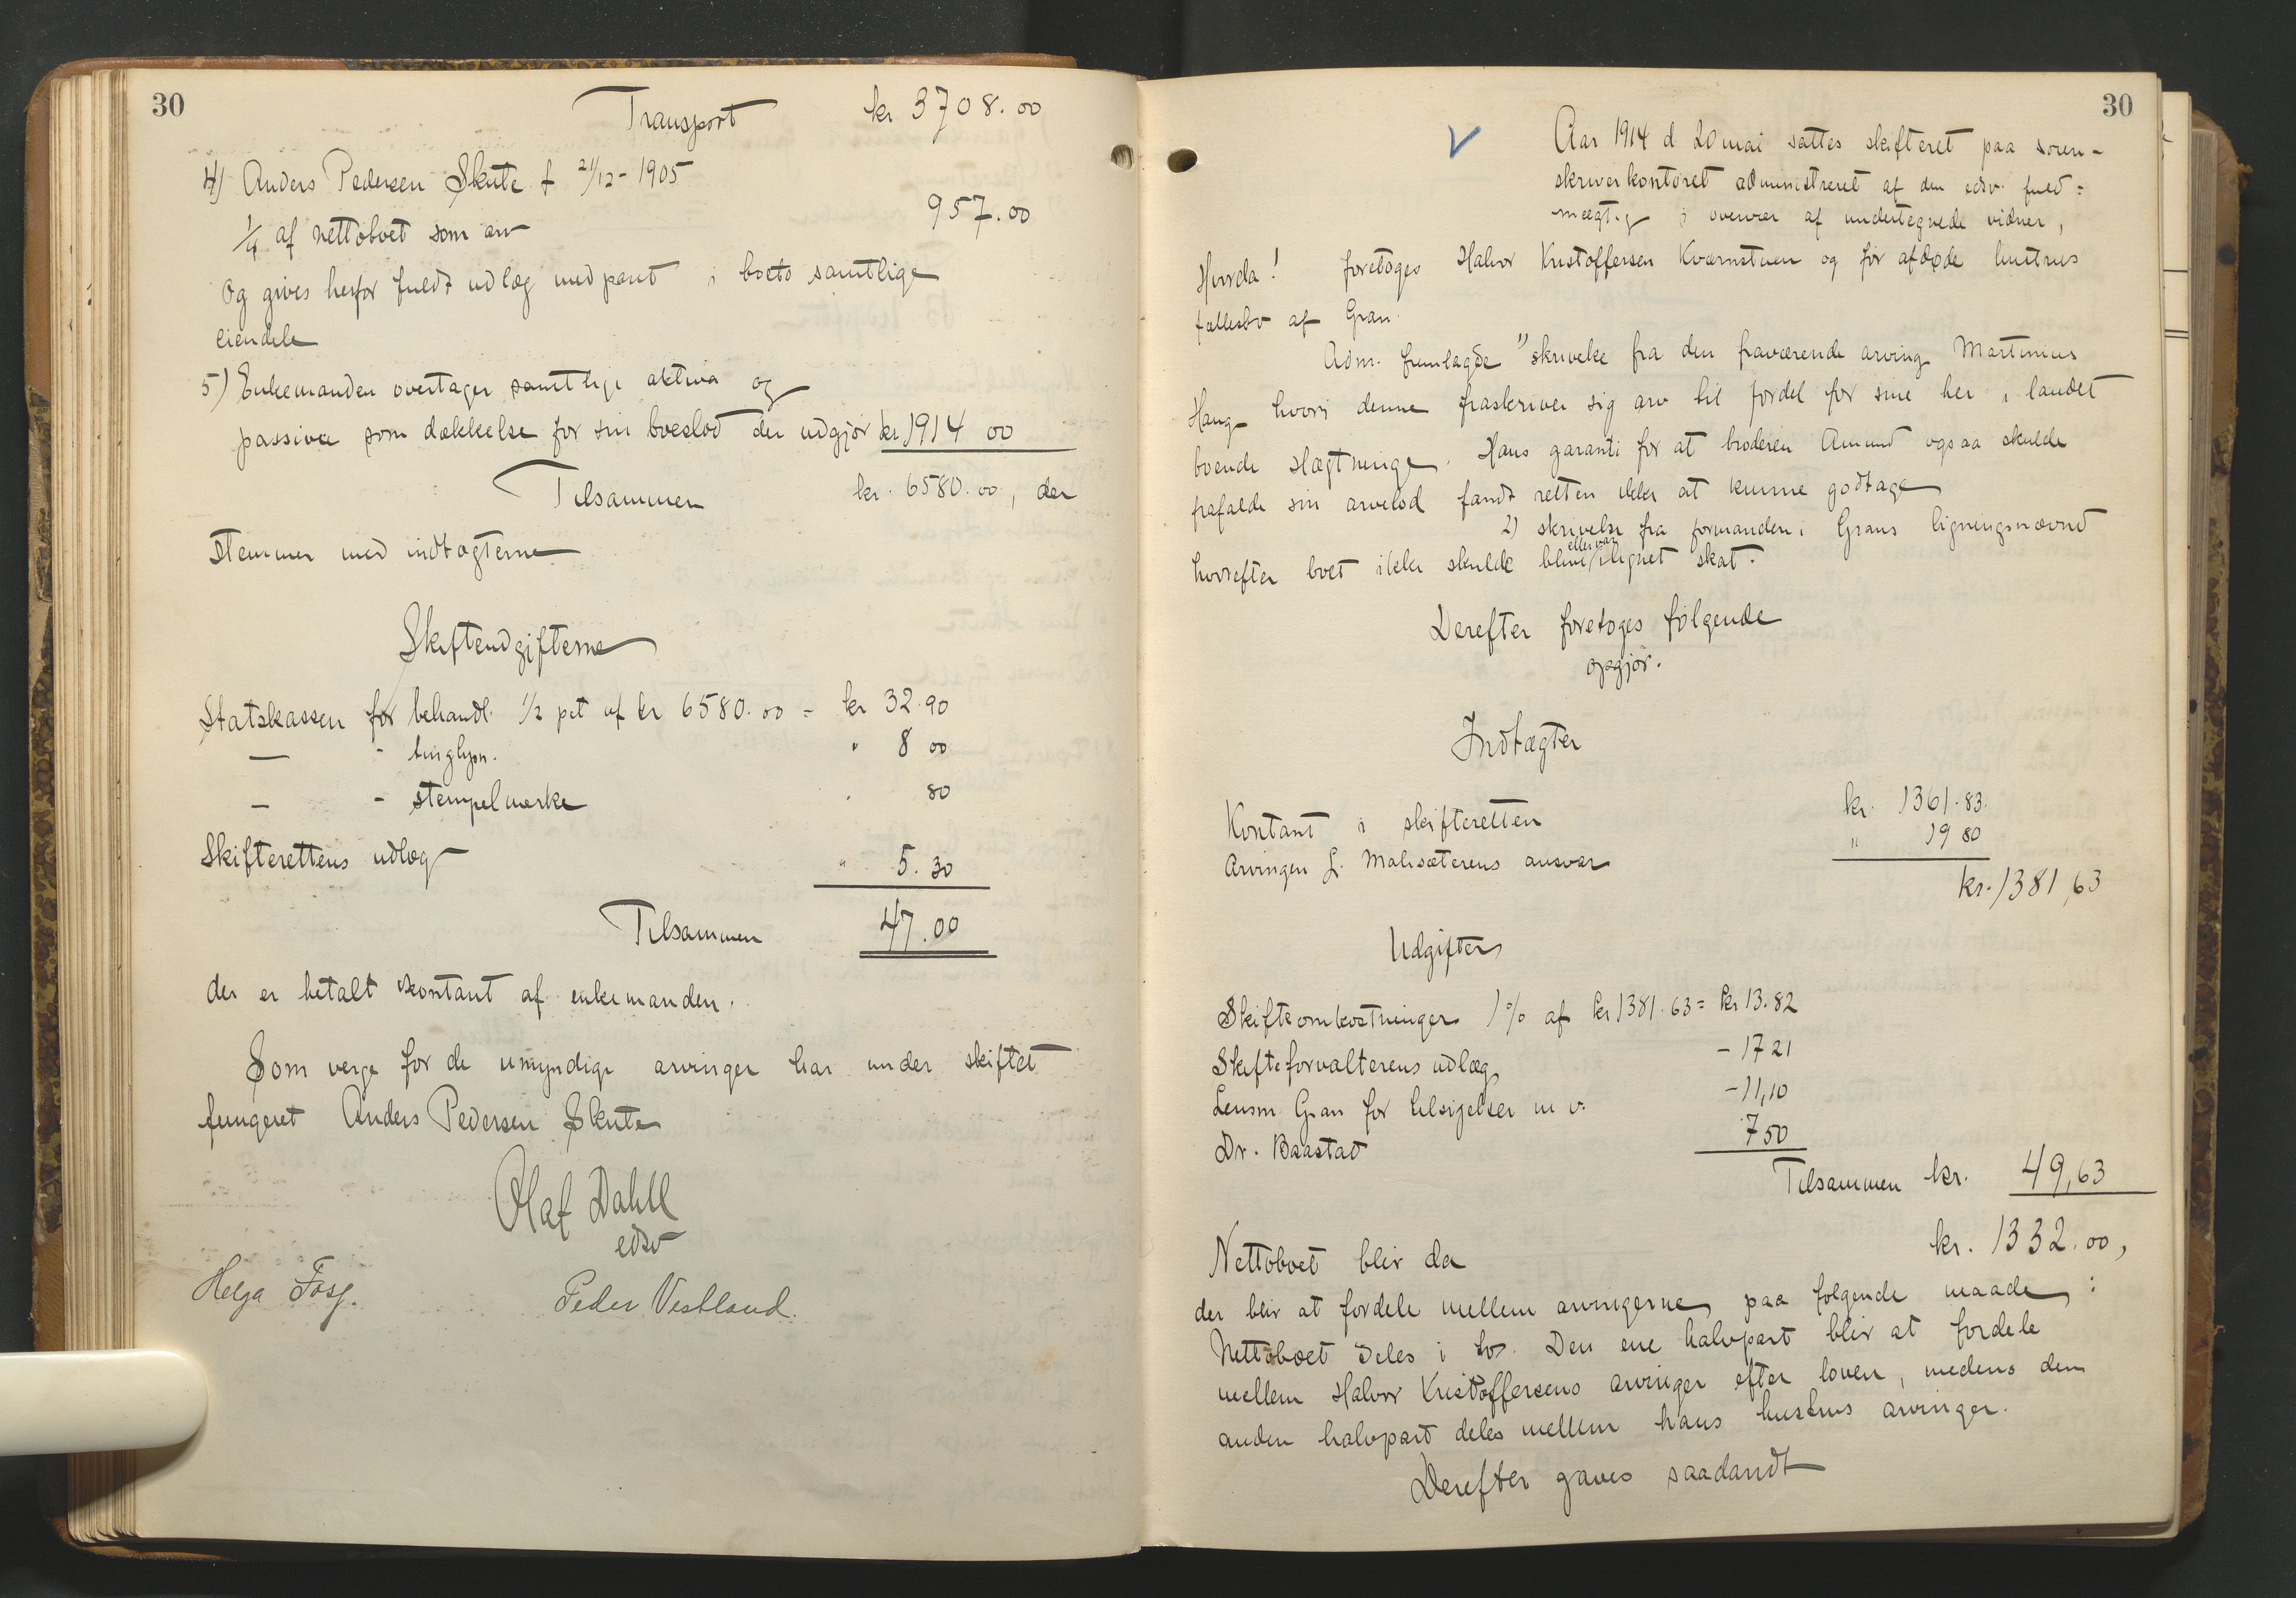 30
Transport kr 3708.00
4) Anders Pedersen Skute f 21/12-1905
1/4 af nettoboet som arv 957.00
Og gives herfor fuldt udlæg med pant i boets samtlige
eiendele
5) Enkemanden overtager samtlige aktiva og
passiva som dækkelse for sin boeslod der udgjør kr 1914 00
Tilsammen kr. 6580.00, der
stemmer med indtægterne
Skifteudgifterne
Statskassen for behandl. 1/2 pct af kr 6580.00 = kr 32.90
— - tinglysn. " 8 00
— - stempelmerke 80
Skifterettens udlæg " 5.30
Tilsammen 47.00
der er betalt kontant af enkemanden.
Som verge for de umyndige arvinger har under skiftet
fungeret Anders Pedersen Skute
Olaf Dahll
edsv
Helga Fosf. Peder Vestland.
30
Aar 1914 d 20 mai sattes skifteret paa soren-
skriverkontoret administreret af den edsv. fuld=
mægtig i overvær af undertegnede vidner,
Hvorda! foretoges Halvor Kristoffersen Kværnstuen og før afdøde hustrus
fællesbo af Gran.
Adm. fremlagde 1) skrivelse fra den fraværende arving Martinius
Haug hvori denne fraskriver sig arv til fordel for sine her i landet
boende slægtninge. Hans garanti for at broderen Amund ogsaa skulde
frafalde sin arvelod fandt retten ikke at kunne godtage
2) skrivelse fra formanden i Grans ligningsnævnd
hvorefter boet ikke skulde blive eller var ilignet skat.
Derefter foretoges følgende
opgjør.
Indtægter
Kontant i skifteretten kr. 1361.83.
Arvingen L. Malisæterens ansvar " 19 80
kr. 1381,63
Udgifter
Skifteomkostninger 1% af kr 1381.63 = kr 13.82
Skifteforvalterens udlæg - 17 21
Lensm. Gran for tilsigelser m v. - 11,10
Dr. Baastad 7 50
Tilsammen kr. 49,63
Nettoboet blir da kr. 1332.00,
der blir at fordele mellem arvingerne paa følgende maade:
Nettoboet deles i to. Den ene halvpart blir at fordele
mellem Halvor Kristoffersens arvinger efter loven, medens den
anden halvpart deles mellem hans hustrus arvinger.
Derefter gaves saadandt